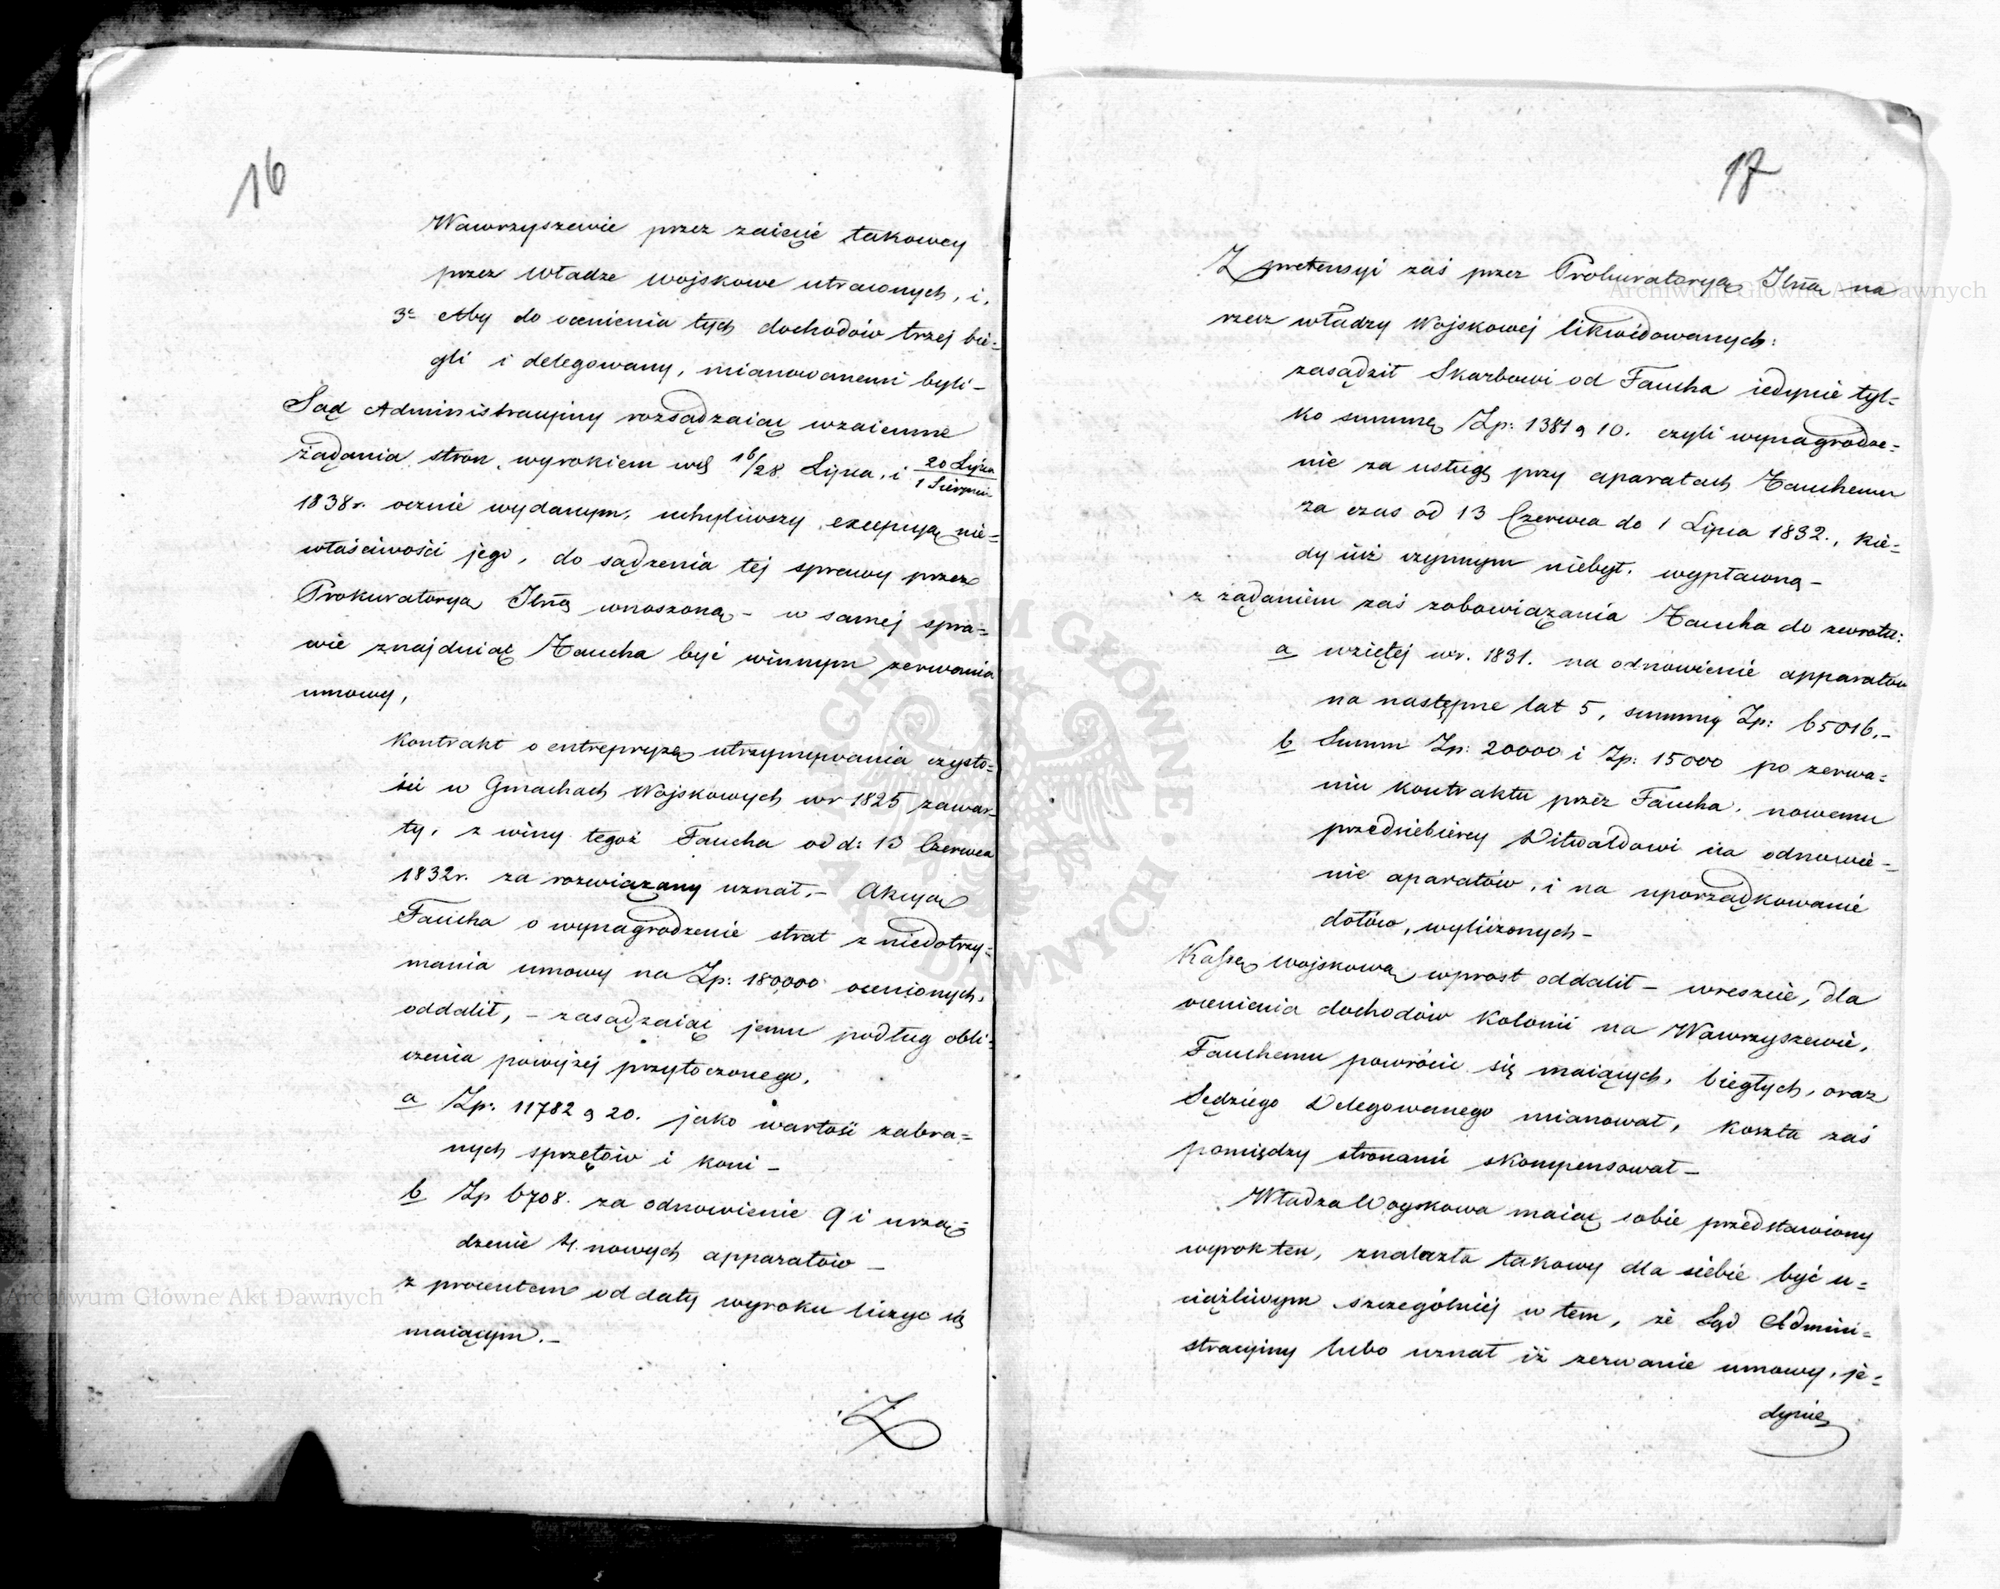 16
Wawrzyszewie przez zaięcie takowey
przez Władze wojskowe utraconych, i,
3e Aby do ocenienia tych dochodów trzej bie=
gli i delegowany, mianowanemi byli –
Sąd Administracyjny rozsądzaiąc wzaiemne
żądania stron, wyrokiem w dniach 16/28 Lipca, i 20 Lipca / 1 Sierpnia
1838 r. ocznie wydanym, uchyliwszy excepcyą nie=
właściwości jego, do sądzenia tej sprawy przez
Prokuratorya Jlną wnoszoną – w samej spra=
wie znajduiąc Faucha być winnym zerwania
umowy,
Kontrakt o entrepryzę utrzymywania czysto=
ści w Gmachach Wojskowych w r 1825 zawar=
ty, z winy tegoż Faucha od d: 13 Czerwca
1832 r. za rozwiązany uznał. – Akcyą
Faucha o wynagrodzenie strat z niedotrzy=
mania umowy na Zp: 180000 ocenionych,
oddalił, – zasądzaiąc jemu podług obli=
czenia powyżej przytoczonego,
a Zp: 11782 g 20. jako wartość zabra=
nych sprzętów i koni –
b Zp 6708. za odnowienie 9 i urzą=
dzenie 4. nowych apparatów –
z procentem od daty wyroku liczyć się
maiącym. –
Z
17
Z pretensyi zaś przez Prokuratoryą Jlną na
rzecz władzy Wojskowej likwidowanych:
zasądził Skarbowi od Faucha iedynie tyl=
ko summę Zp: 1381 g 10. czyli wynagrodze=
nie za usługę przy aparatach Fauchemu
za czas od 13 Czerwca do 1 Lipca 1832., kie=
dy iuż czynnym niebył, wypłaconą –
z żądaniem zaś zobowiązania Faucha do zwrotu:
a wziętej w r. 1831. na odnowienie apparatów
na następne lat 5, summy Zp: 65016. –
b Summ Zp: 20000 i Zp: 15000 po zerwa=
niu kontraktu przez Faucha, nowemu
przedsiębiercy Ditwaldowi na odnowie=
nie aparatów, i na uporządkowanie
dołów, wyliczonych –
Kassę wojskową wprost oddalił – wreszcie, dla
ocenienia dochodów Kolonii na Wawrzyszewie,
Fauchemu powrócić się maiących, biegłych, oraz
Sędziego Delegowanego mianował, koszta zaś
pomiędzy stronami skompensował –
Władza Woyskowa maiąc sobie przedstawiony
wyrok ten, znalazła takowy dla siebie być u=
ciążliwym szczególniej w tem, że Sąd Admini=
stracyjny lubo uznał iż zerwanie umowy, je=
dynie
Archiwum Główne Akt Dawnych
Archiwum Główne Akt Dawnych
ARCHIWUM GŁÓWNE AKT DAWNYCH